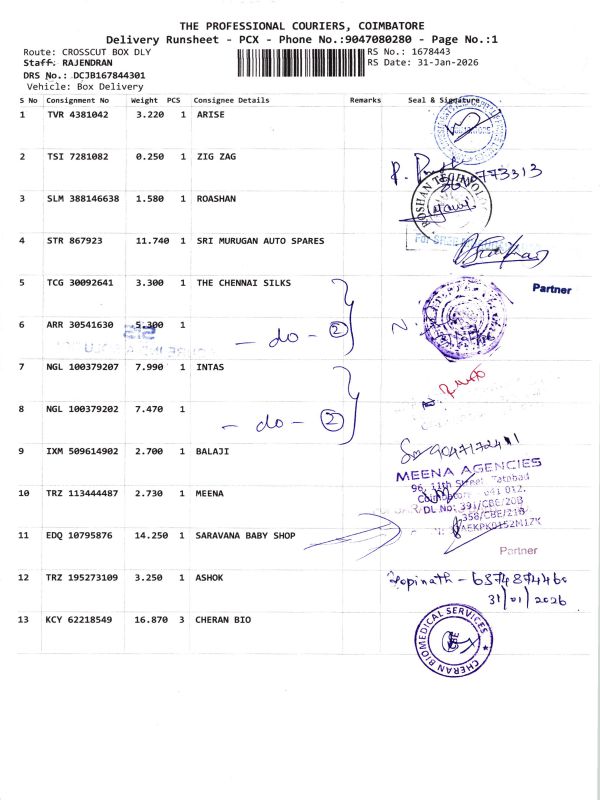 THE PROFESSIONAL COURIERS, COIMBATORE
Delivery Runsheet - PCX - Phone No.:9047080280 - Page No.:1
Route: CROSSCUT BOX DLY
RS No.: 1678443
Staff: RAJENDRAN
RS Date: 31-Jan-2026
DRS No.: DCJB167844301
Vehicle: Box Delivery
S No Consignment No Weight PCS Consignee Details Remarks Seal & Signature
1 TVR 4381042 3.220 1 ARISE
2 TSI 7281082 0.250 1 ZIG ZAG
773313
3 SLM 388146638 1.580 1 ROASHAN
ROSHAN
4 STR 867923 11.740 1 SRI MURUGAN AUTO SPARES
For
5 TCG 30092641 3.300 1 THE CHENNAI SILKS
Partner
6 ARR 30541630 5.300 1
- do - 2
7 NGL 100379207 7.990 1 INTAS
8 NGL 100379202 7.470 1
- do - 2
9 IXM 509614902 2.700 1 BALAJI
MEENA AGENCIES
96, 11th Street, Tatabad
10 TRZ 113444487 2.730 1 MEENA
Coimbatore - 641 012.
DL No: 391/CBE/20B
358/CBE/21B
11 EDQ 10795876 14.250 1 SARAVANA BABY SHOP
Partner
12 TRZ 195273109 3.250 1 ASHOK
Gopinath - 6374874460
31/01/2026
13 KCY 62218549 16.870 3 CHERAN BIO
CHERAN BIOMEDICAL SERVICES
CBE